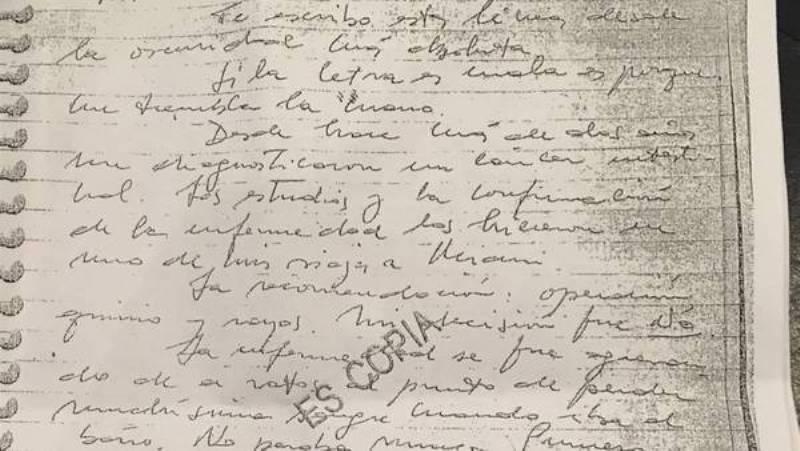 Te escribo estas líneas desde
la oscuridad más absoluta.
Si la letra es mala es porque
me tiembla la mano.
Desde hace más de dos años
me diagnosticaron un cáncer intesti-
nal. Los estudios y la confirmación
de la enfermedad los hicieron en
uno de mis viajes a Miami.
La recomendación: operación
quimio y rayos. Mi decisión fue No.
La enfermedad se fue agravan
do de a ratos al punto de perder
muchísima sangre cuando iba al
baño. No paraba nunca. Primero
ES COPIA